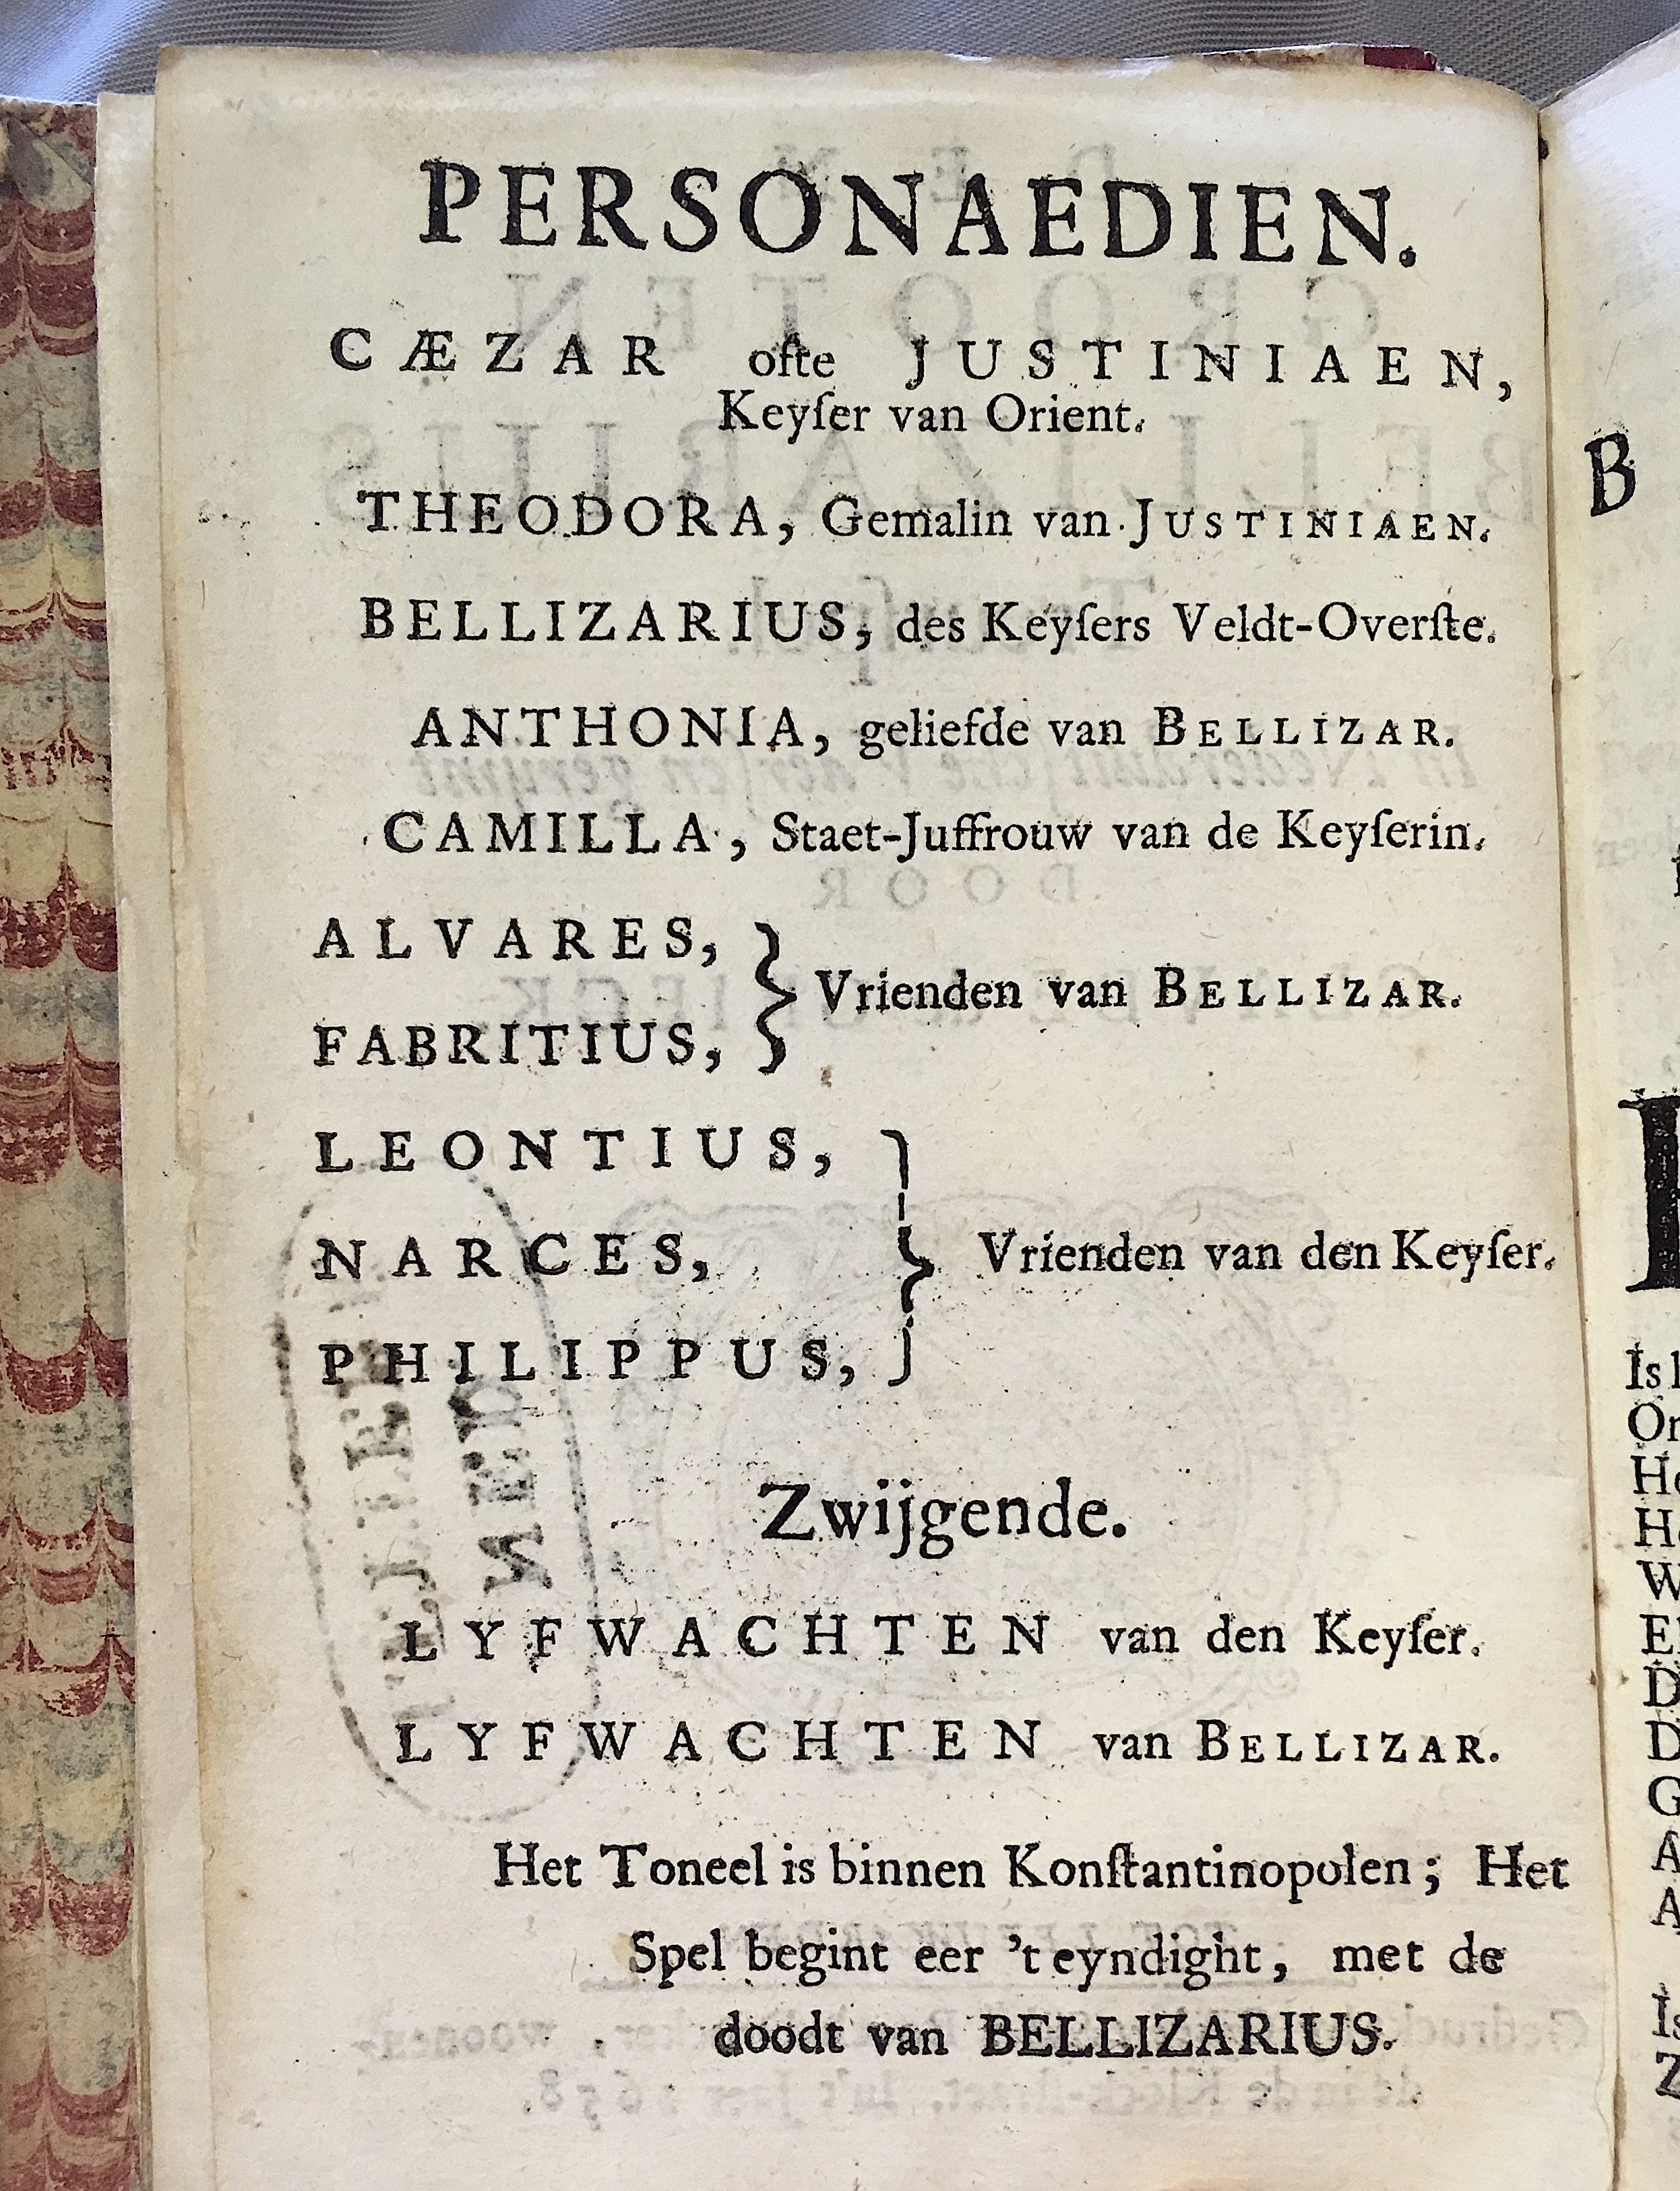 PERSONAEDIEN.
CÆZAR ofte JUSTINIAEN,
Keyſer van Orient.
THEODORA, Gemalin van JUSTINIAEN.
BELLIZARIUS, des Keyſers Veldt-Overſte.
ANTHONIA, geliefde van BELLIZAR.
CAMILLA, Staet-Juffrouw van de Keyſerin.
ALVARES,
FABRITIUS,
Vrienden van BELLIZAR.
LEONTIUS,
NARCES,
PHILIPPUS,
Vrienden van den Keyſer.
Zwijgende.
LYFWACHTEN van den Keyſer.
LYFWACHTEN van BELLIZAR.
Het Toneel is binnen Konſtantinopolen; Het
Spel begint eer 't eyndight, met de
doodt van BELLIZARIUS.